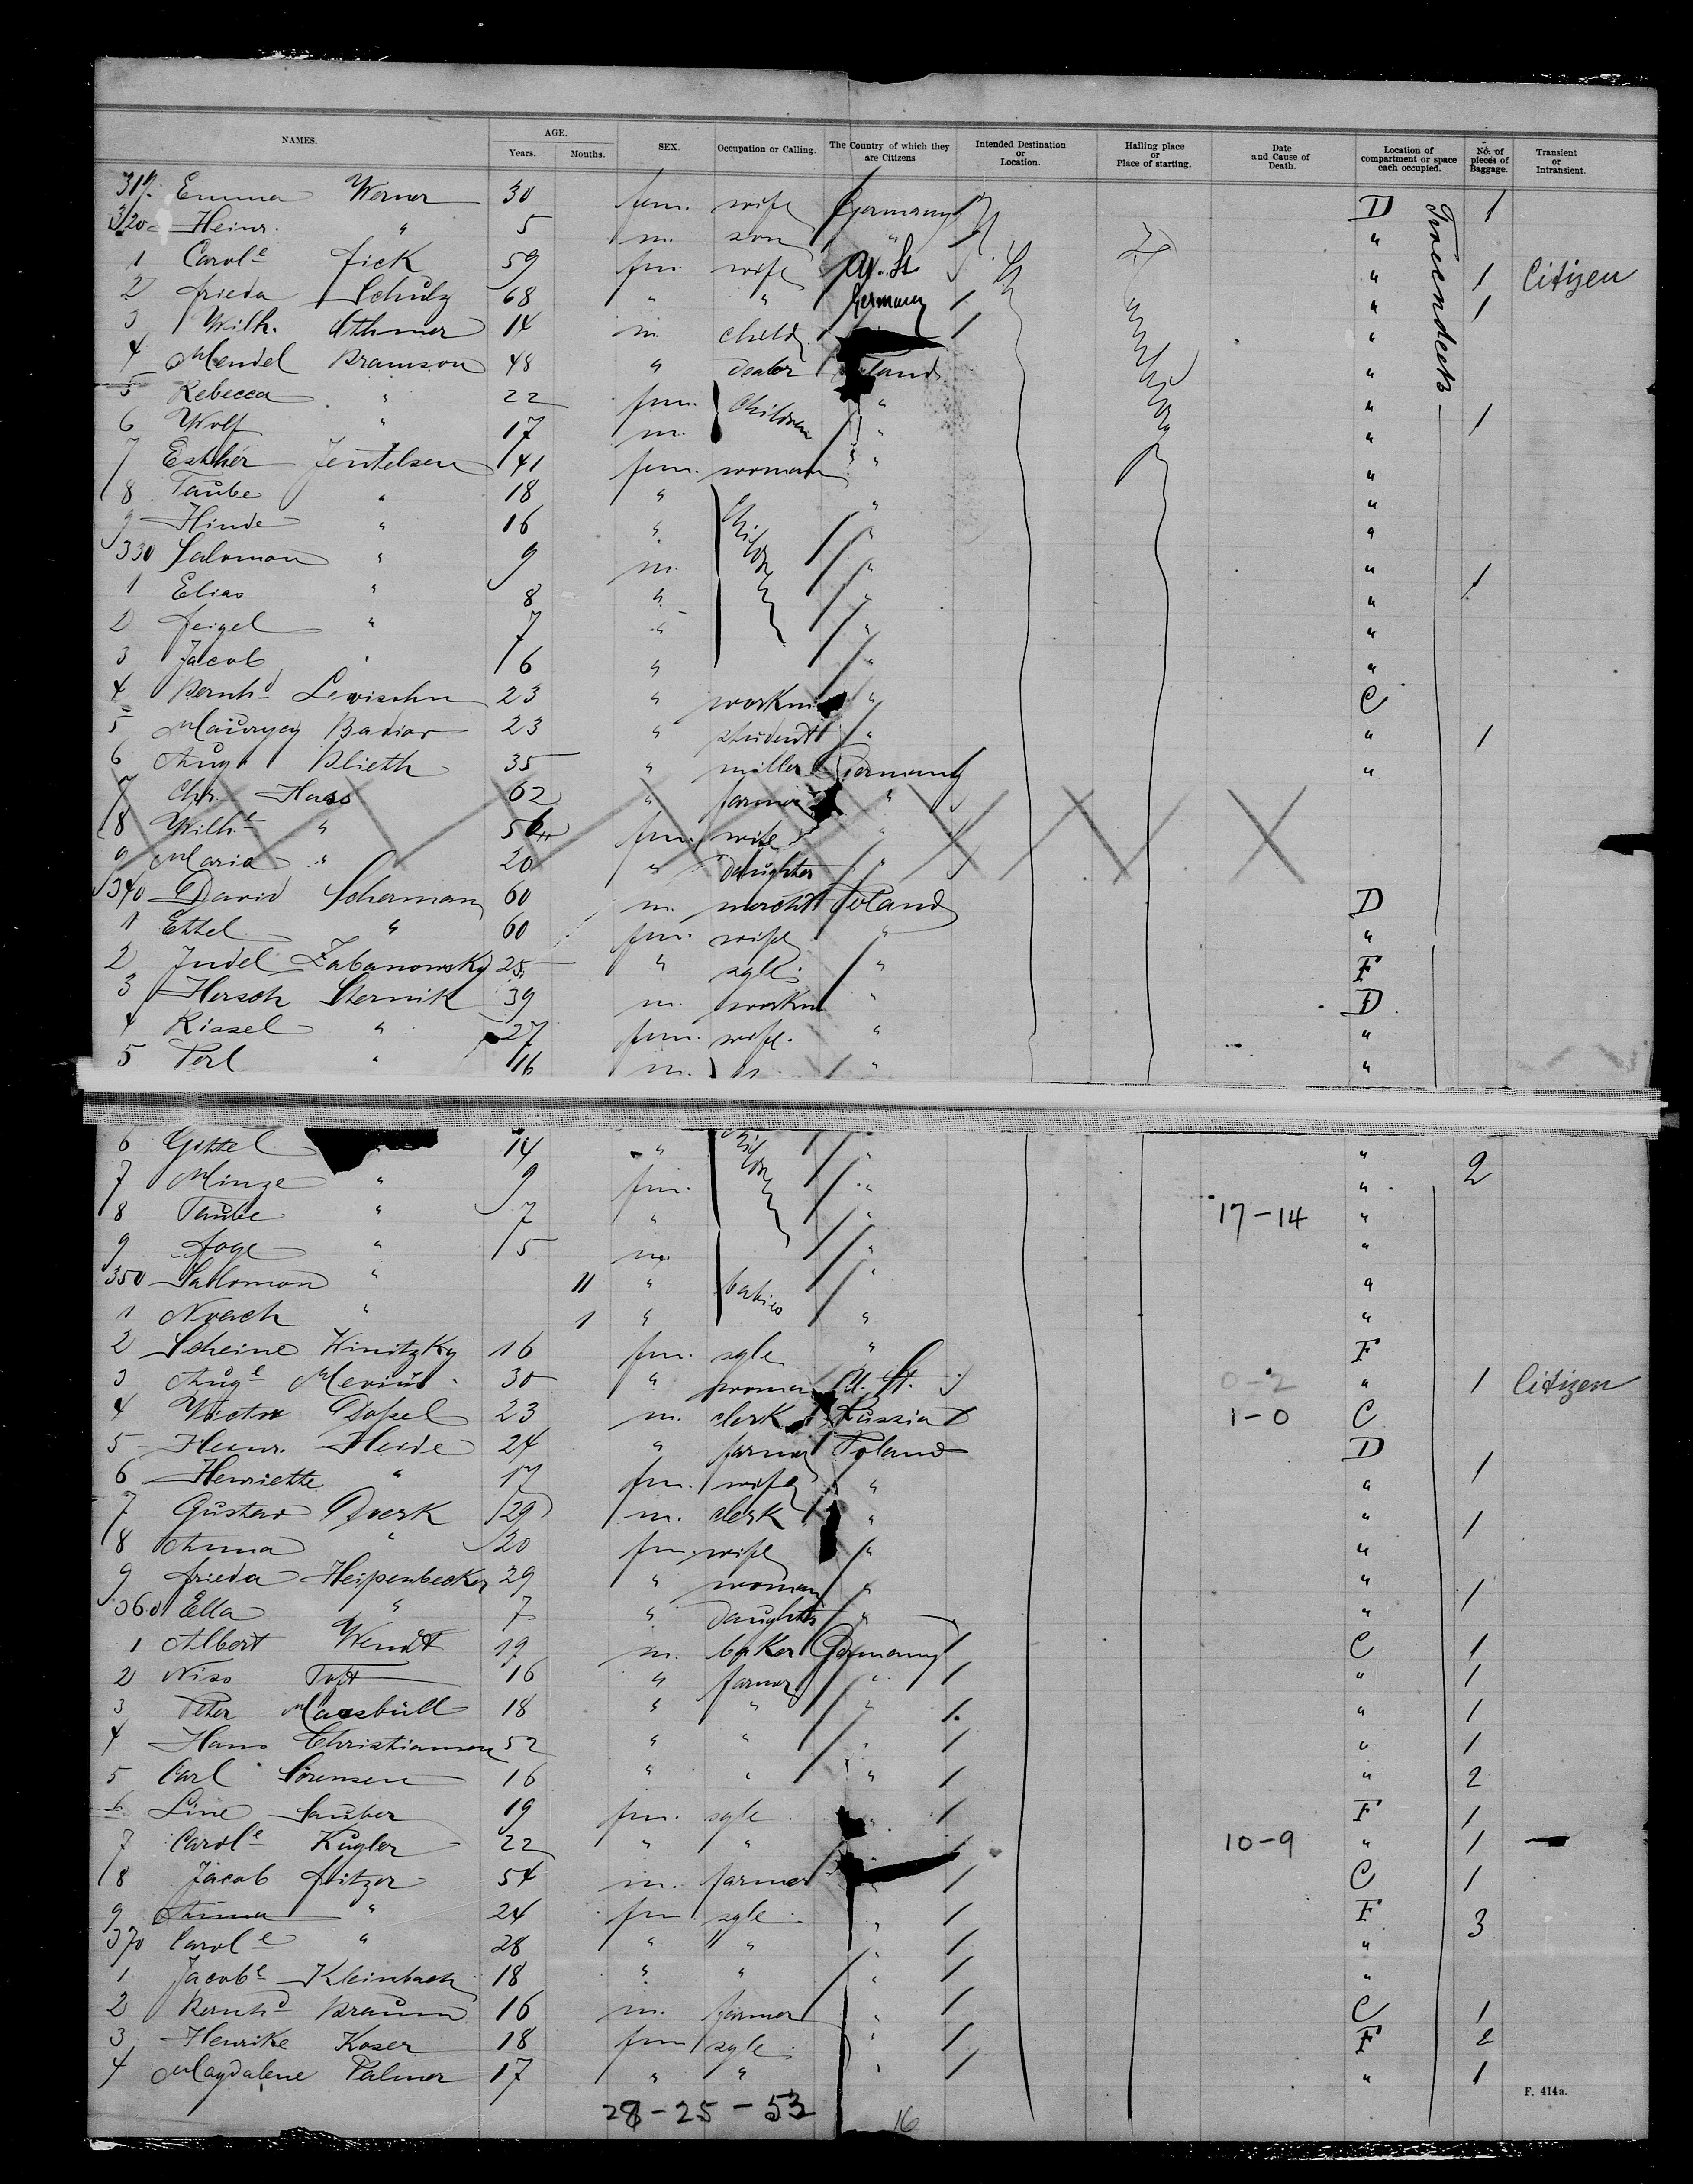 NAMES. AGE. SEX. Occupation or Calling. The Country of which they are Citizens Intended Destination or Location. Hailing place or Place of starting. Date and Cause of Death. Location of compartment or space each occupied. No. of pieces of Baggage. Transient or Intransient.
Years. Months.
319. Emma Werner 30 fem. wife Germany D 1
320 Heinr. " 5 m. son " "
1 Carole Fick 59 fm. wife U. St. " 1 Citizen
2 Frieda Schulz 68 " " Germany " 1
3 Wilh. Athmer 14 m. child "
4 Mendel Bramson 48 " dealer Poland "
5 Rebecca " 22 fem. children " "
6 Wolf " 17 m. " " 1
7 Esther Jentelsen 41 fem. woman " "
8 Taube " 18 " children " "
9 Hinde " 16 " " "
330 Salomon " 9 m. " "
1 Elias " 8 " " " 1
2 Feigel " 7 " " "
3 Jacob " 6 " " "
4 Bernhd Lewisohn 23 " workm " C
5 Maurycy Badior 23 " student " " 1
6 Aug. Blieth 35 " miller Germany "
7 Chr. Hass 62 " farmer "
8 Wilhe " 54 fm. wife "
9 Maria " 20 " daughter "
340 David Scherman 60 m. mercht Poland D
1 Ettel " 60 fm. wife " "
2 Judel Zabanowsky 25 " sgle. " F
3 Hersch Sternik 39 m. workm " D
4 Rissel " 27 fem. wife. " "
5 Perl " 16 m. " "
6 Gittel 14 " children " "
7 Minze " 9 fm. " " 2
8 Taube " 7 " " 17-14 "
9 Foge " 5 m. " "
350 Salomon " 11 " babies " "
1 Noach " 1 " " "
2 Scheine Kinitzky 16 fm. sgle " F
3 Auge Mevius 30 " woman U. St. 0-2 " 1 Citizen
4 Victor Dossel 23 m. clerk Russia 1-0 C
5 Heinr. Heide 24 " farmer Poland D
6 Henriette " 17 fm. wife " " 1
7 Gustav Doerk 29 m. clerk " " 1
8 Anna " 20 fm. wife " "
9 Frieda Heissenbecker 29 " woman " " 1
360 Ella " 7 " daughter " "
1 Albert Wendt 19 m. baker Germany C 1
2 Niss Toft 16 " farmer " " 1
3 Peter Maasbüll 18 " " " " 1
4 Hans Christiansen 52 " " " " 1
5 Carl Sörensen 16 " " " " 2
6 Line Sauber 19 fm. sgle " F 1
7 Carole Kugler 22 " " 10-9 " 1
8 Jacob Fritzer 54 m. farmer " C 1
9 Anna " 24 fm. sgle " F 3
370 Carole " 28 " " " "
1 Jacobe Kleinbach 18 " " " "
2 Bernhd Braun 16 m. farmer " C 1
3 Henrike Koser 18 fm sgle " F 2
4 Magdalene Palmer 17 " " " " 1
Hamburg
Tweendeck
28-25-53 16
F. 414a.